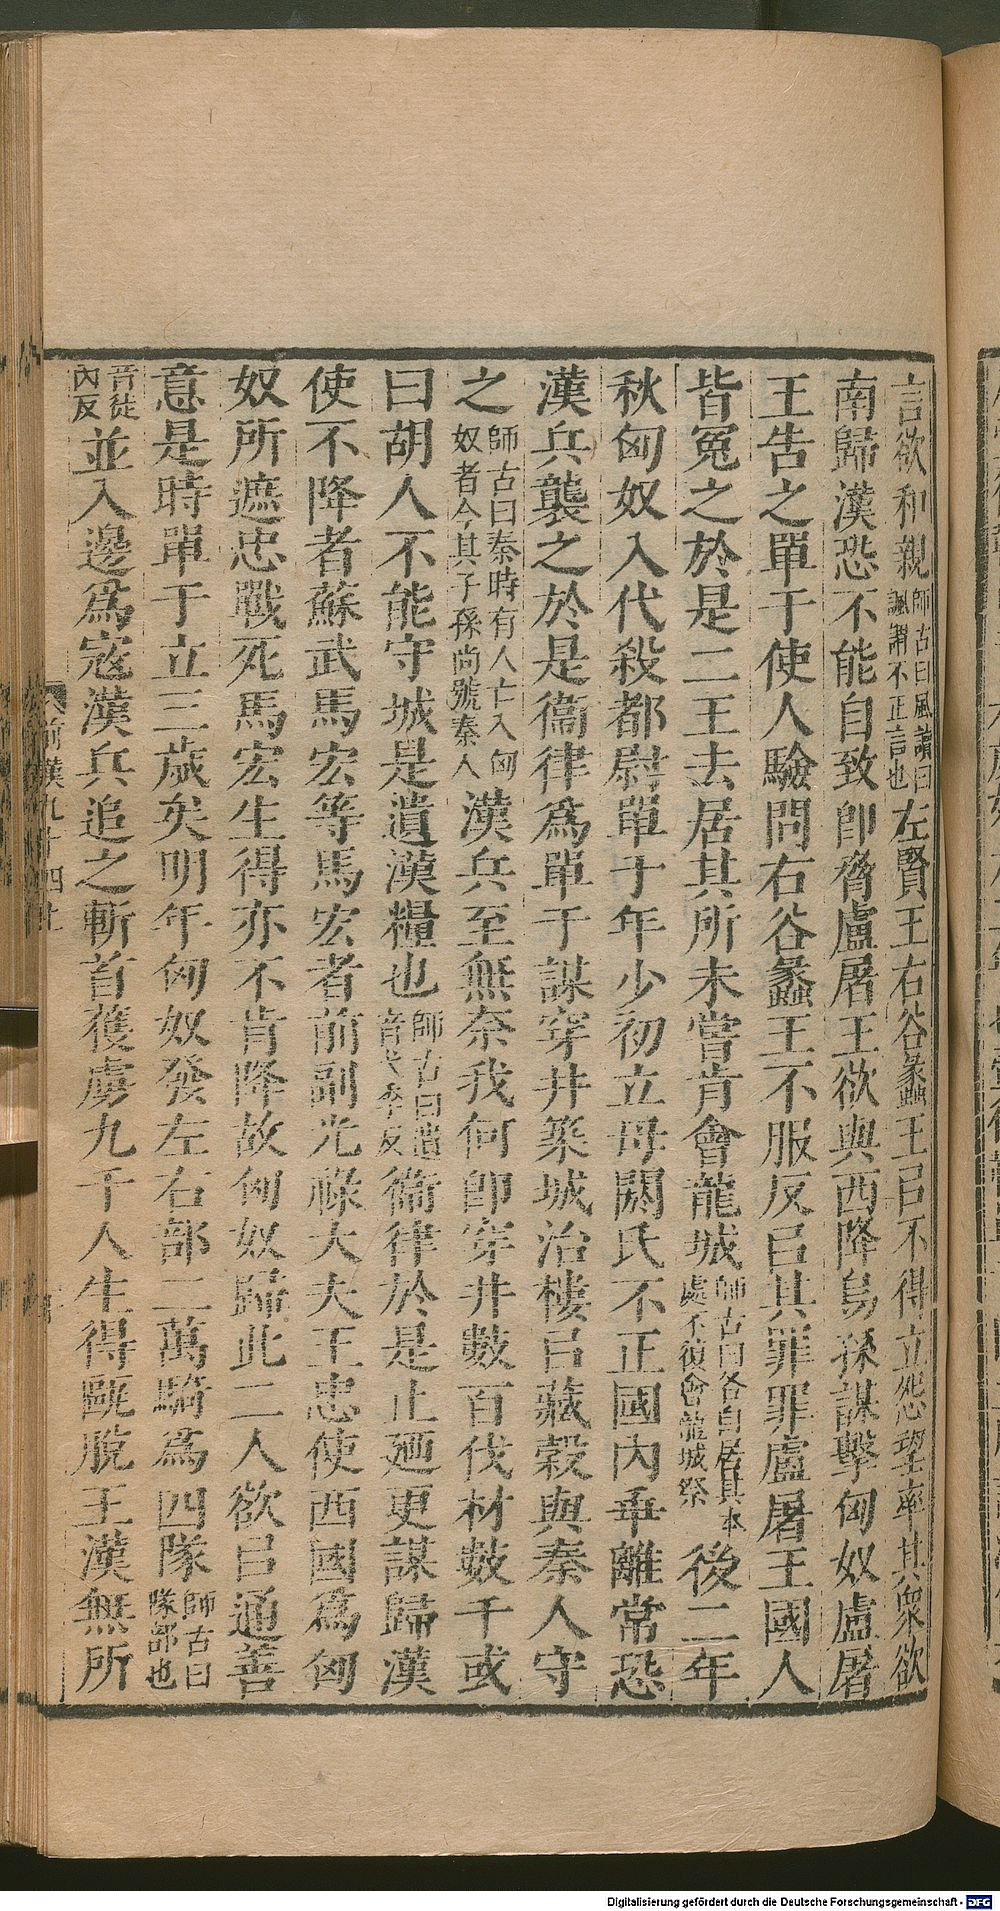 言欲和親師古曰風讀曰諷謂不正言也左賢王右谷蠡王㠯不得立怨望率其衆欲
南歸漢恐不能自致卽脅盧屠王欲與西降烏孫謀擊匈奴盧屠
王告之單于使人驗問右谷蠡王不服反㠯其罪罪盧屠王國人
皆冤之於是二王去居其所未嘗肯會龍城師古曰各自居其本處不復會龍城祭後二年
秋匈奴入代殺都尉單于年少初立母閼氏不正國內乖離常恐
漢兵襲之於是衞律爲單于謀穿井築城治樓㠯藏穀與秦人守
之師古曰秦時有人亡入匈奴者今其子孫尚號秦人漢兵至無奈我何卽穿井數百伐材數千或
曰胡人不能守城是遺漢糧也師古曰遺音弋季反衞律於是止廼更謀歸漢
使不降者蘇武馬宏等馬宏者前副光祿大夫王忠使西國爲匈
奴所遮忠戰死馬宏生得亦不肯降故匈奴歸此二人欲㠯通善
意是時單于立三歲矣明年匈奴發左右部二萬騎爲四隊師古曰隊部也
音徒內反並入邊爲寇漢兵追之斬首獲虜九千人生得甌脫王漢無所
前漢九十四上
Digitalisierung gefördert durch die Deutsche Forschungsgemeinschaft - DFG